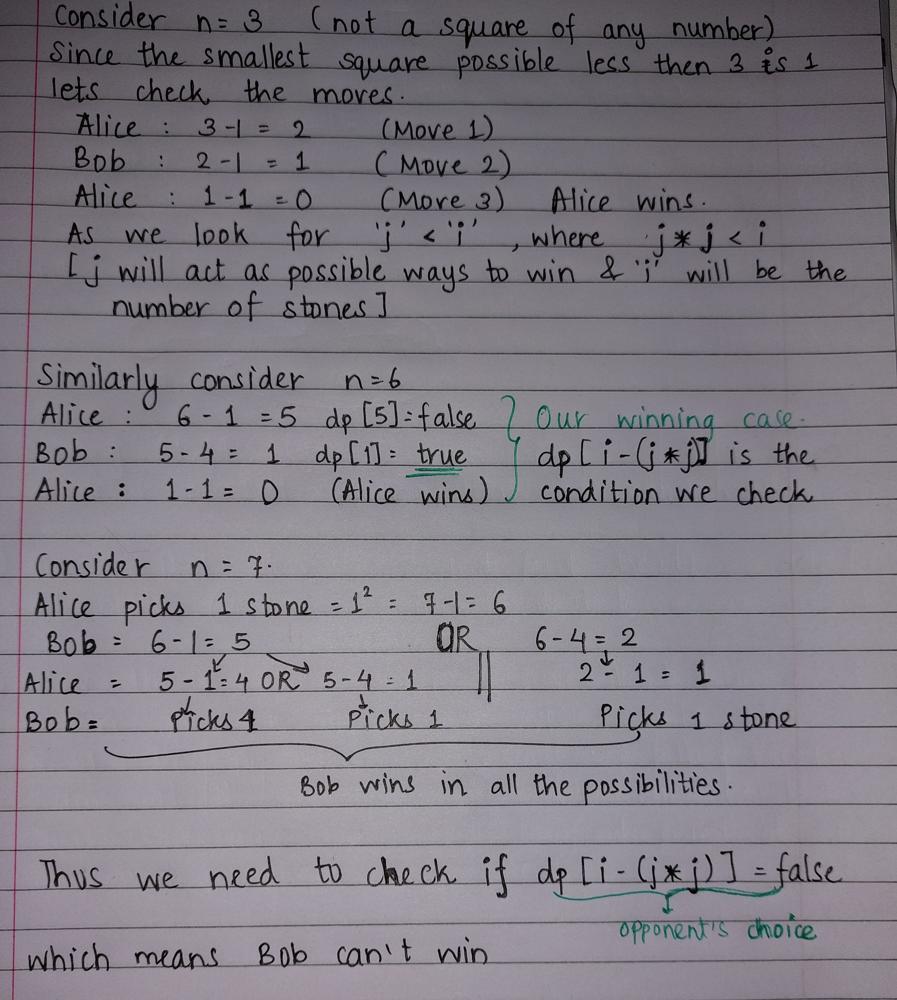 Consider n= 3 (not a square of any number)
Since the smallest square possible less then 3 is 1
lets check the moves.
Alice : 3-1 = 2 (Move 1)
Bob : 2-1 = 1 (Move 2)
Alice : 1-1 = 0 (Move 3) Alice wins.
As we look for 'j' < 'i' , where j * j < i
[ j will act as possible ways to win & 'i' will be the
number of stones ]
Similarly consider n=6
Alice : 6 - 1 = 5 dp [5] = false } Our winning case.
Bob : 5 - 4 = 1 dp[1] = true dp [ i - (j * j)] is the
Alice : 1 - 1 = 0 (Alice wins) condition we check
Consider n = 7.
Alice picks 1 stone = 1² = 7-1 = 6
Bob = 6-1 = 5 OR 6-4 = 2
Alice = 5 - 1 = 4 OR 5-4 = 1 || 2 - 1 = 1
Bob = Picks 4 Picks 1 Picks 1 stone
Bob wins in all the possibilities.
Thus we need to check if dp [i - (j * j)] = false
opponent's choice
which means Bob can't win